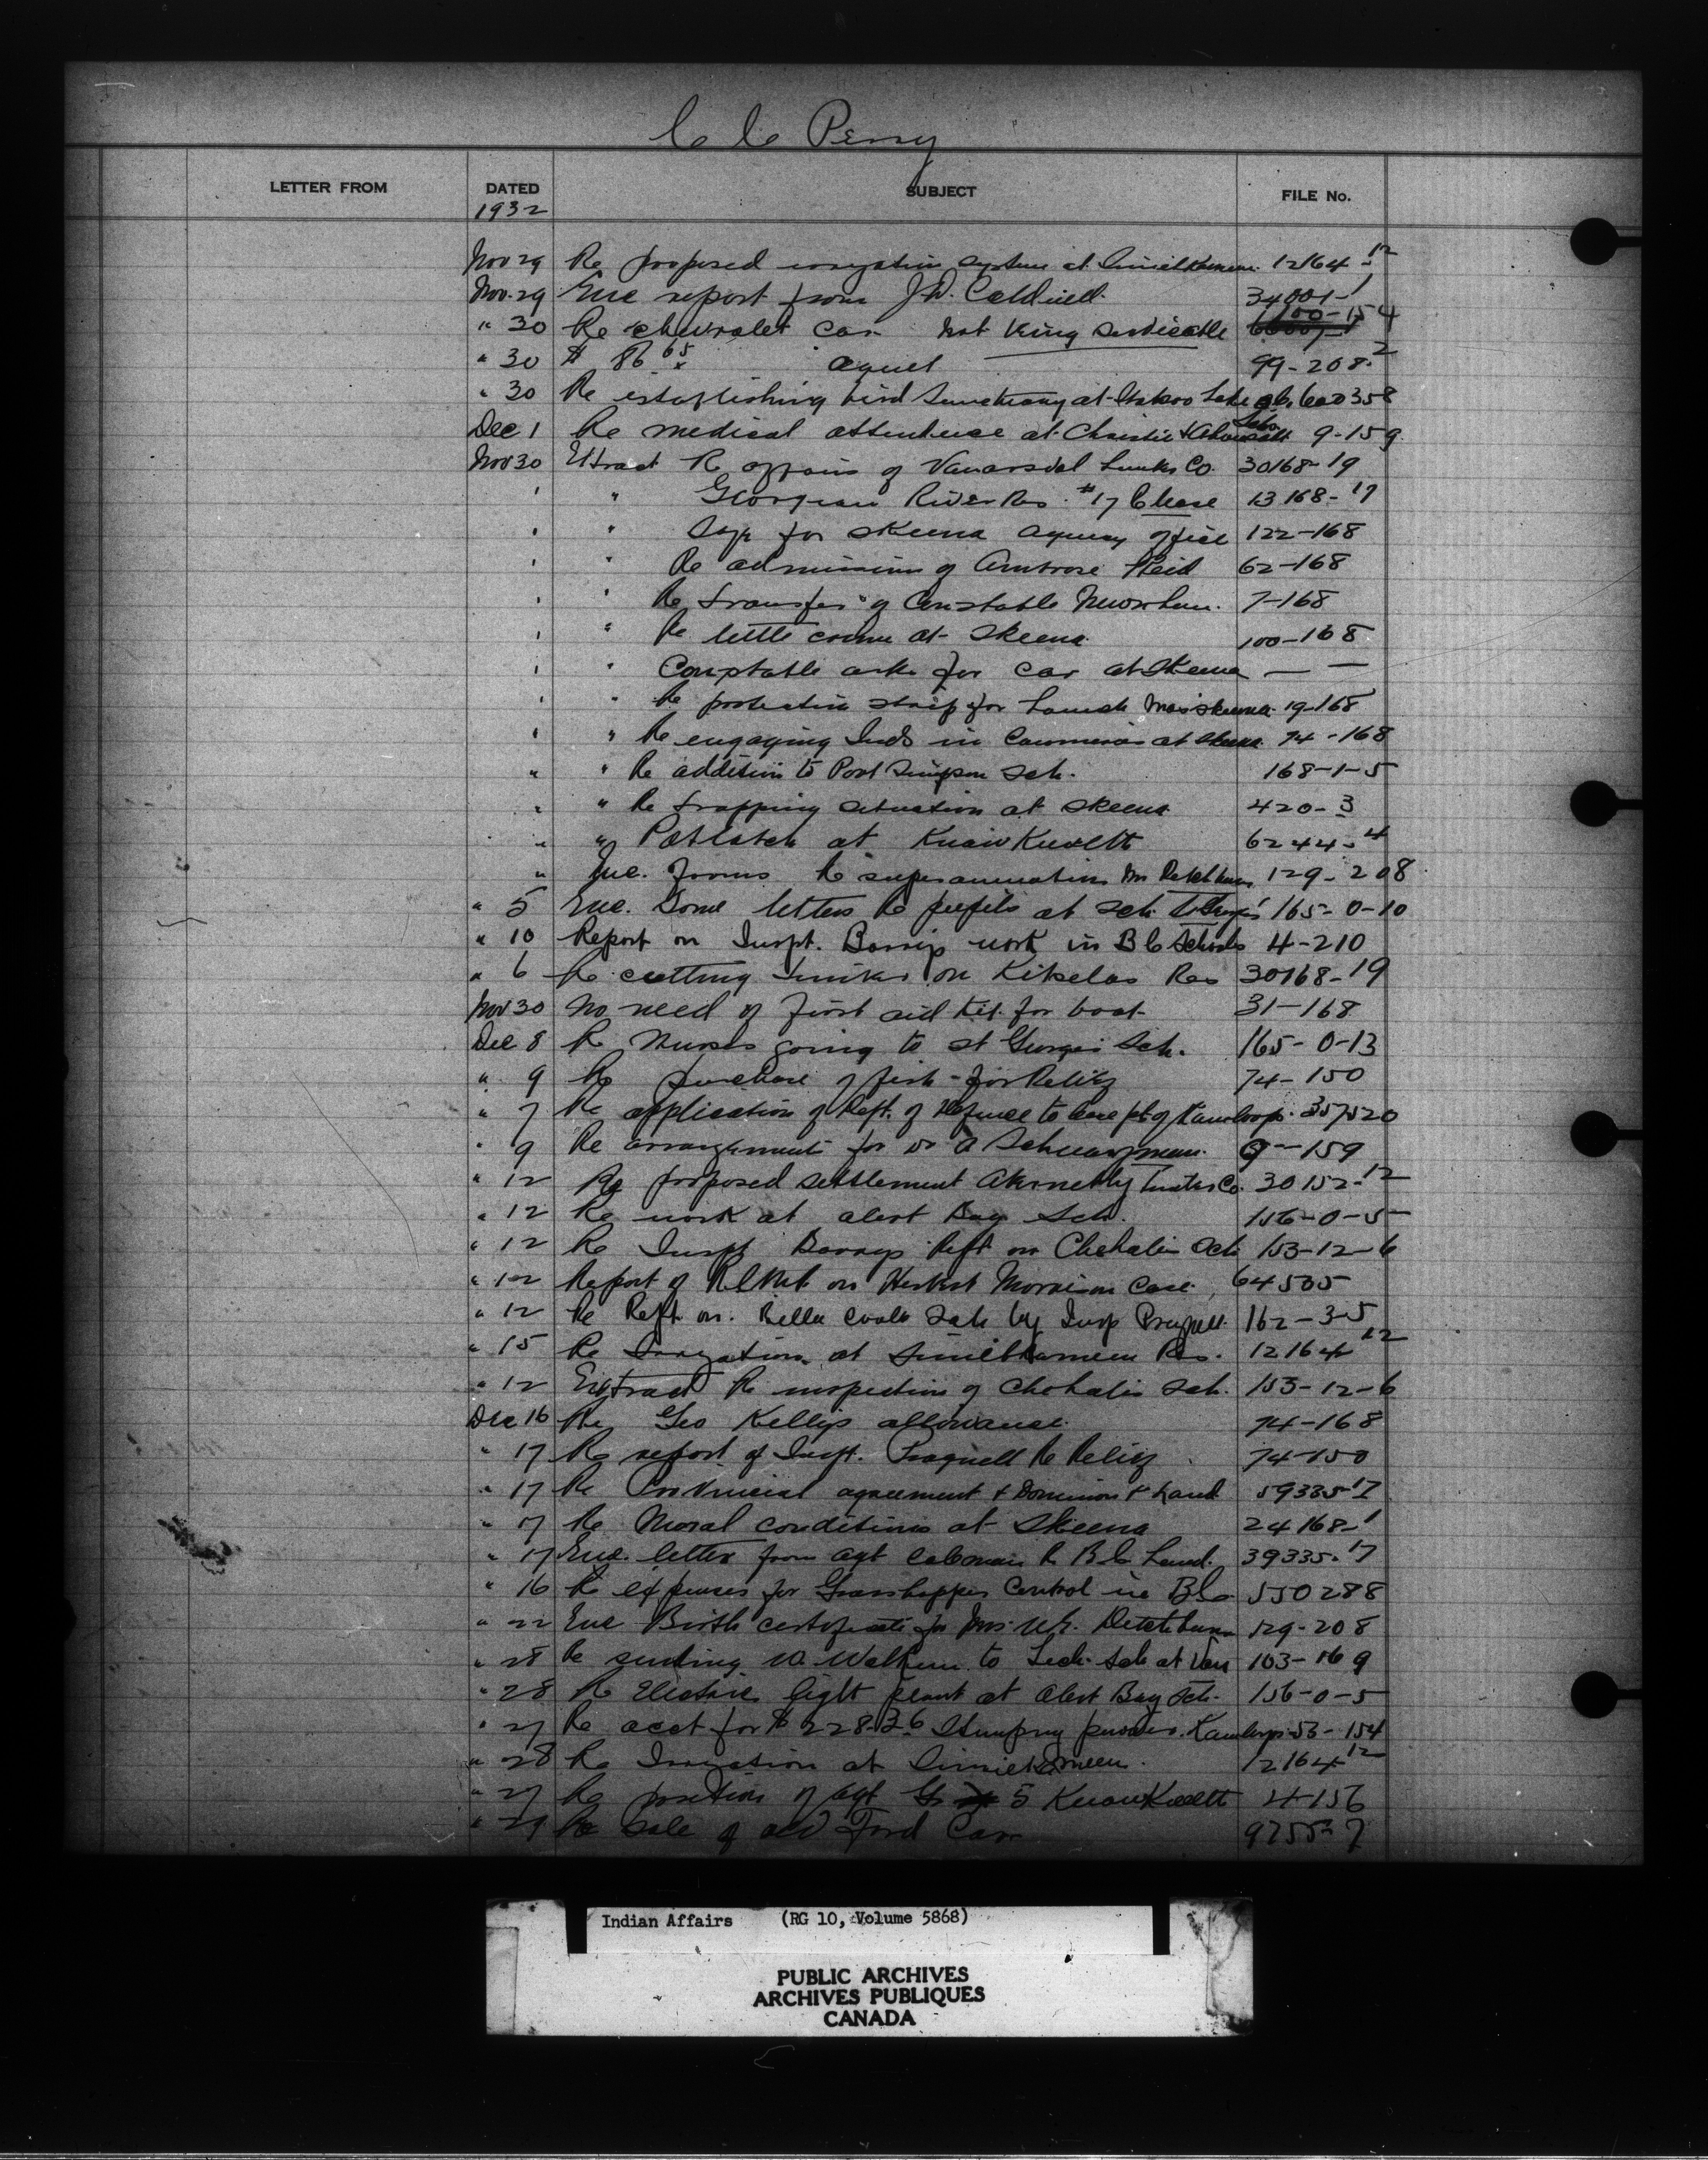 C C Perry
LETTER FROM DATED SUBJECT FILE No.
1932
Nov 29 Re proposed irrigation system at Similkameen 12164-12
Nov. 29 Enc report from J.D. Caldwell. 34001-1
" 30 Re chevrolet car Not King serviceable 1100-154
" 30 $ 86 65 99-208-2
" 30 Re establishing bird Sanctuary at Lake 358
Dec 1 Re medical attendance at Christie & Schs. 9-159
Nov 30 Extract Re affairs of Vanarsdal Co. 30168-19
" " River Res #17 13168-17
" " for Skeena agency office 122-168
" " Re admission of Ambrose Reid 62-168
" " Re transfer of Constable 7-168
" " Re little crime at Skeena 100-168
" " Constable asks for car at Skeena — —
" " Re protection strip for Launch Skeena 19-168
" " Re engaging Inds in Canneries at Skeena 74-168
" " Re addition to Port Simpson Sch. 168-1-5
" " Re trapping situation at Skeena 420-3
" " Potlatch at 6244-4
" Enc. forms Re superannuation Mr 129-208
" 5 Enc. Some letters Re pupils at Sch. St George's 165-0-10
" 10 Report on Inspt. Barry's work in B C Schools 4-210
" 6 Re cutting on Kitselas Res 30168-19
Nov 30 No need of first aid kit for boat 31-168
Dec 8 Re Nurses going to St George's Sch. 165-0-13
" 9 Re purchase of fish for Relief 74-150
" 7 Re application of Dept. of Defence to lease pt of Kamloops 357520
" 9 Re arrangements for Dr A 9-159
" 12 Re proposed settlement Abernethy Co. 30152-12
" 12 Re work at Alert Bay Sch. 156-0-5
" 12 Re Inspt Barrys Rept on Chehalis Sch 153-12-6
" 12 Report of on Herbert Morrison Case. 64535
" 12 Re Rept. on. Bella Coola Sch by Insp 162-3-5
" 15 Re Irrigation at Similkameen Res. 12164-12
" 12 Extract Re inspection of Chehalis Sch. 153-12-6
Dec 16 Re Geo Kelly's allowance. 74-168
" 17 Re report of Inspt. Re Relief 74-150
" 17 Re Provincial agreement & Dominion Land 59335-17
" 17 Re Moral conditions at Skeena 24168-1
" 17 Enc. letter from agt Re B C Land. 39335-17
" 16 Re expenses for Grasshopper Control in B C 550288
" 22 Enc Birth certificate for Mrs. 129-208
" 28 Re sending to Tech. Sch at Van 103-169
" 28 Re Electric light plant at Alert Bay Sch. 156-0-5
" 27 Re acct for $228.36 Stumping powder. Kamloops 53-154
" 28 Re Irrigation at Similkameen. 12164-12
" 27 Re position of agt 5 4-156
" 29 Re sale of old Ford Car 9755-7
Indian Affairs (RG 10, Volume 5868)
PUBLIC ARCHIVES
ARCHIVES PUBLIQUES
CANADA